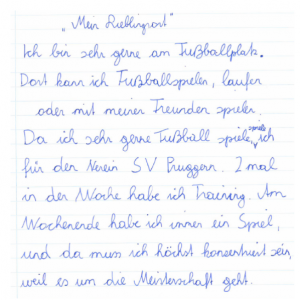 „Mein Lieblingsort"
Ich bin sehr gerne am Fußballplatz.
Dort kann ich Fußballspielen, laufen
oder mit meinen Freunden spielen.
Da ich sehr gerne Fußball spiele, spiele ich
für den Verein SV Pruggern. 2 mal
in der Woche habe ich Training. Am
Wochenende habe ich immer ein Spiel,
und da muss ich höchst konzentriert sein,
weil es um die Meisterschaft geht.